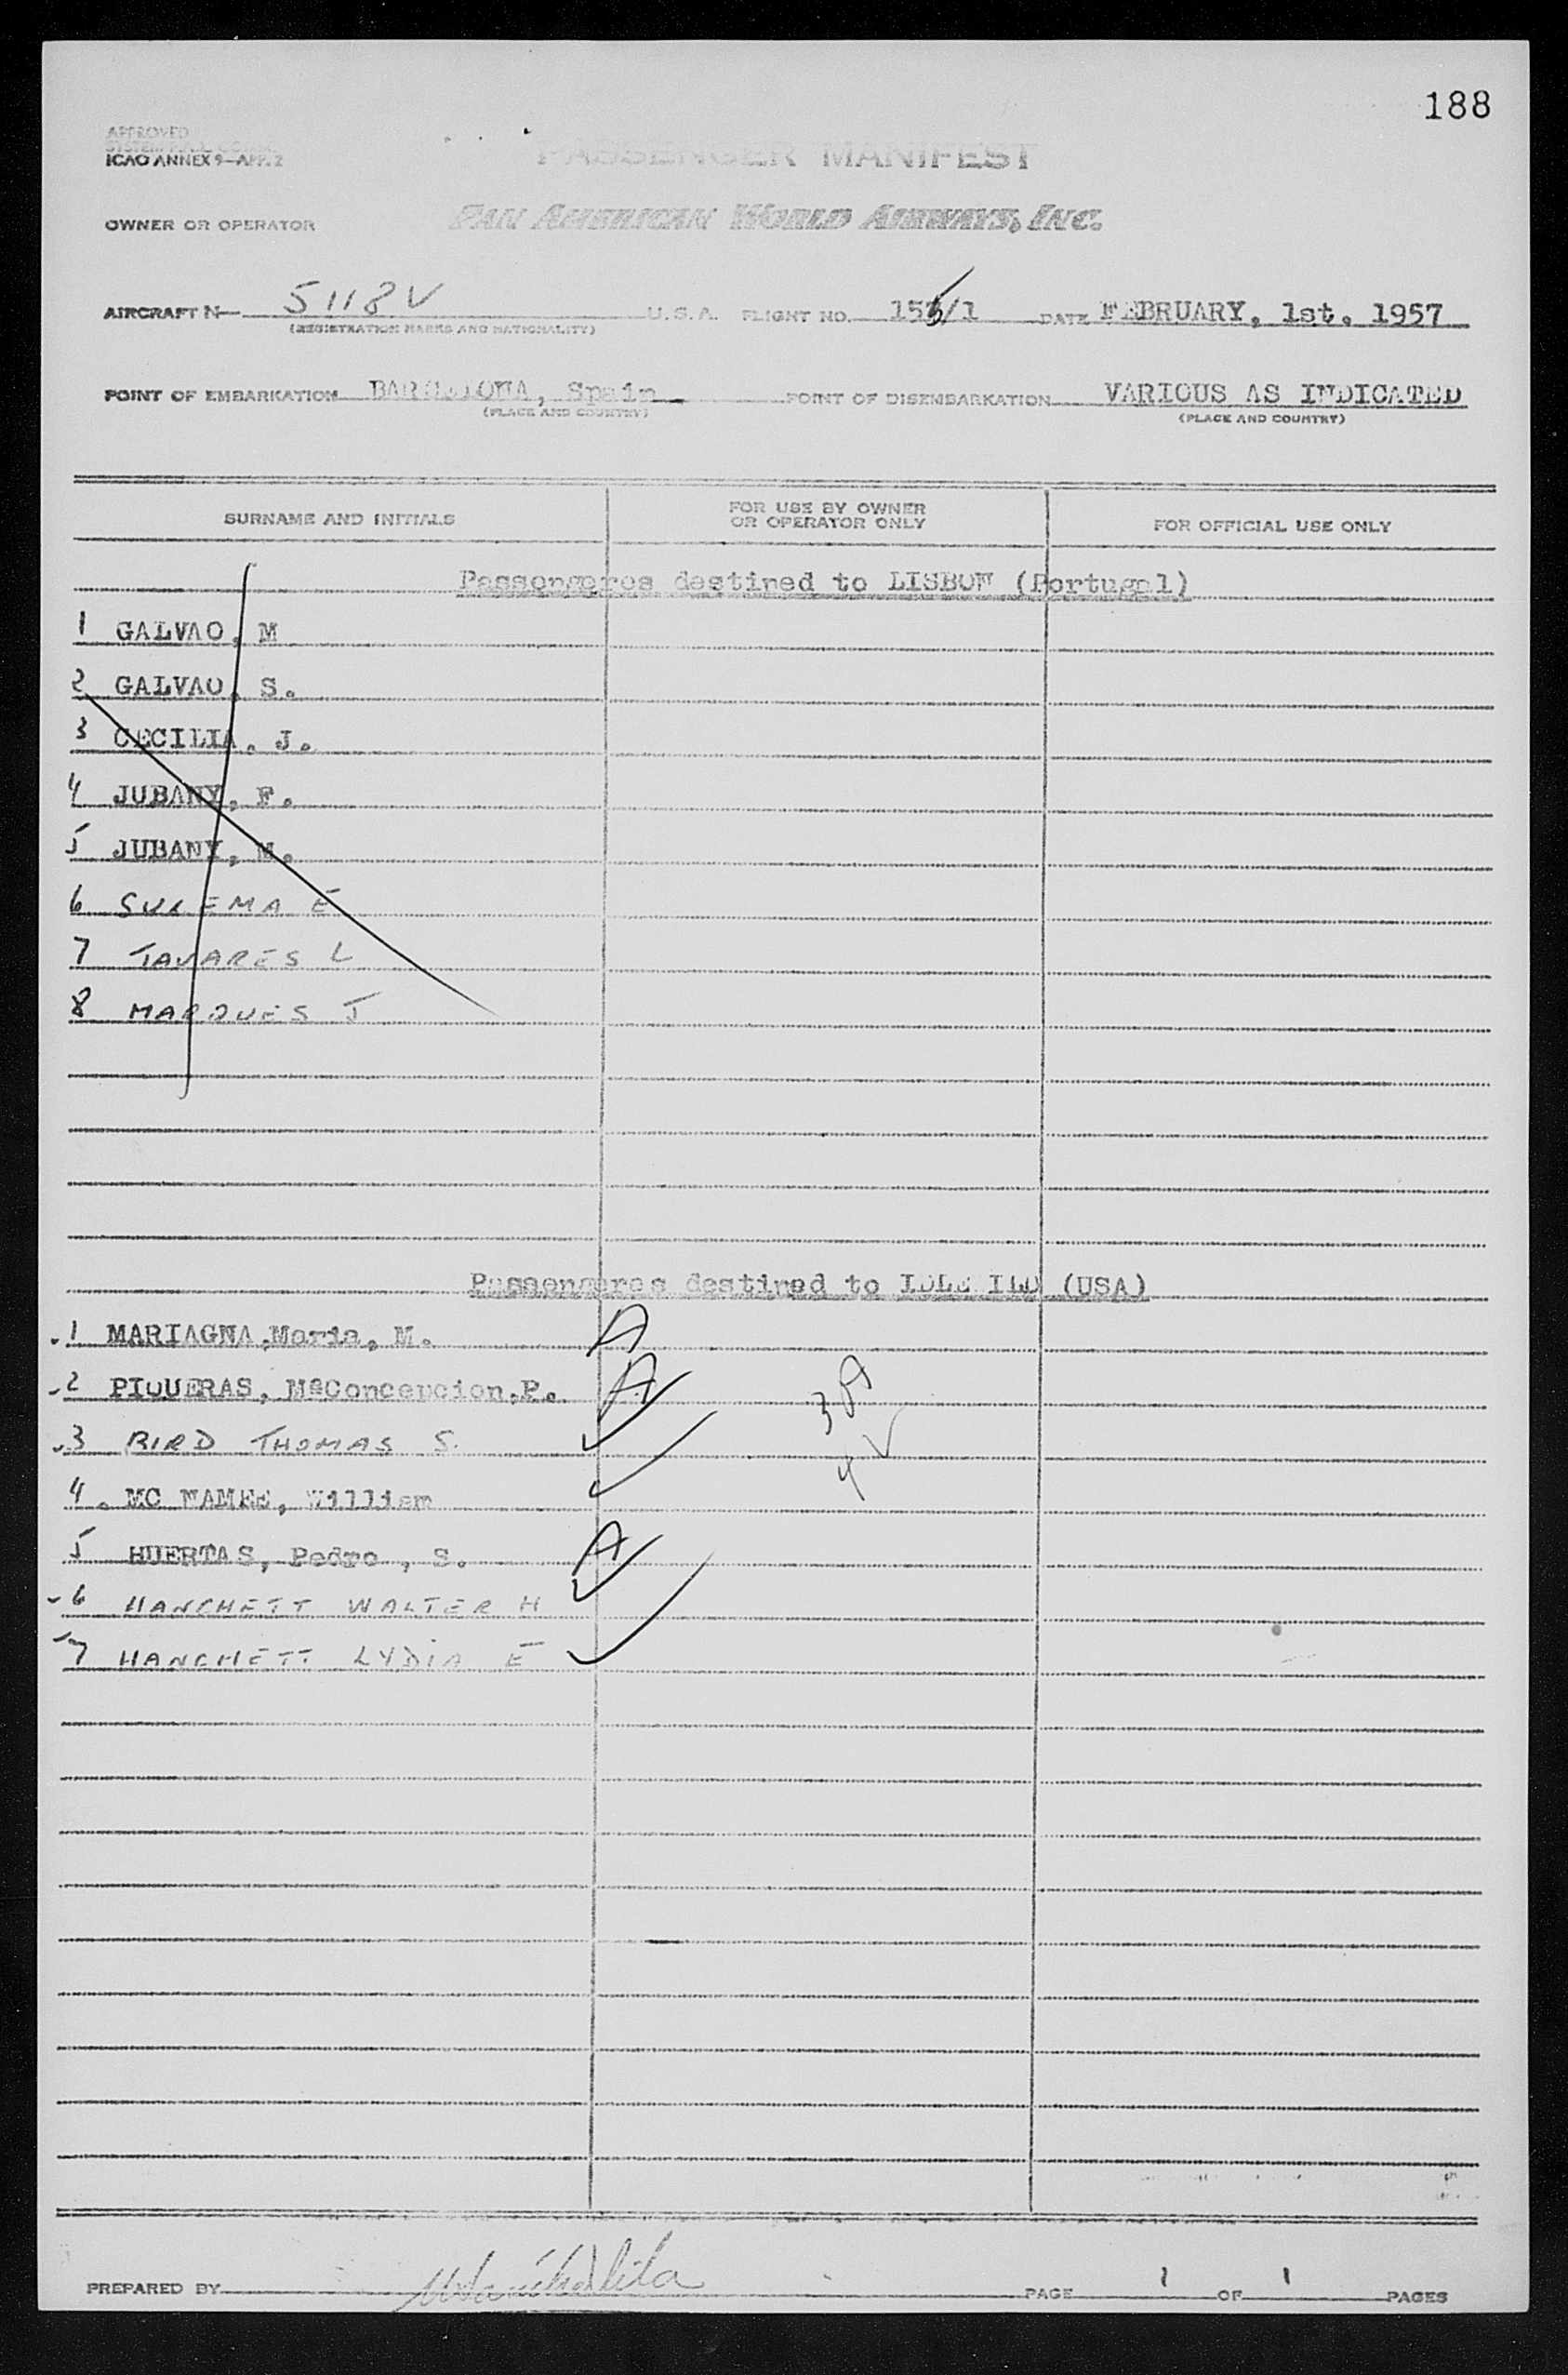 188
APPROVED
ICAO ANNEX 9—APP. 2
PASSENGER MANIFEST
OWNER OR OPERATOR PAN AMERICAN WORLD AIRWAYS, INC.
AIRCRAFT N— 5118V U.S.A. FLIGHT NO. 155/1 DATE FEBRUARY, 1st. 1957
(REGISTRATION MARKS AND NATIONALITY)
POINT OF EMBARKATION BARCELONA, Spain POINT OF DISEMBARKATION VARIOUS AS INDICATED
(PLACE AND COUNTRY) (PLACE AND COUNTRY)
SURNAME AND INITIALS FOR USE BY OWNER OR OPERATOR ONLY FOR OFFICIAL USE ONLY
Passengeros destined to LISBON (Portugal)
1 GALVAO, M
2 GALVAO, S.
3 CECILIA. J.
4 JUBANY, F.
5 JUBANY, M.
6 SULEMA E
7 TAVARES L
8 MARQUES J
Passengeros destined to IDLE ILD (USA)
1 MARIAGNA,Maria, M. A
2 PIQUERAS, MªConcepcion,P. A
3 BIRD THOMAS S.
4. MC NAMEE, William
5 HUERTAS, Pedro, S. A
6 HANCHETT WALTER H
7 HANCHETT LYDIA E
PREPARED BY PAGE 1 OF 1 PAGES